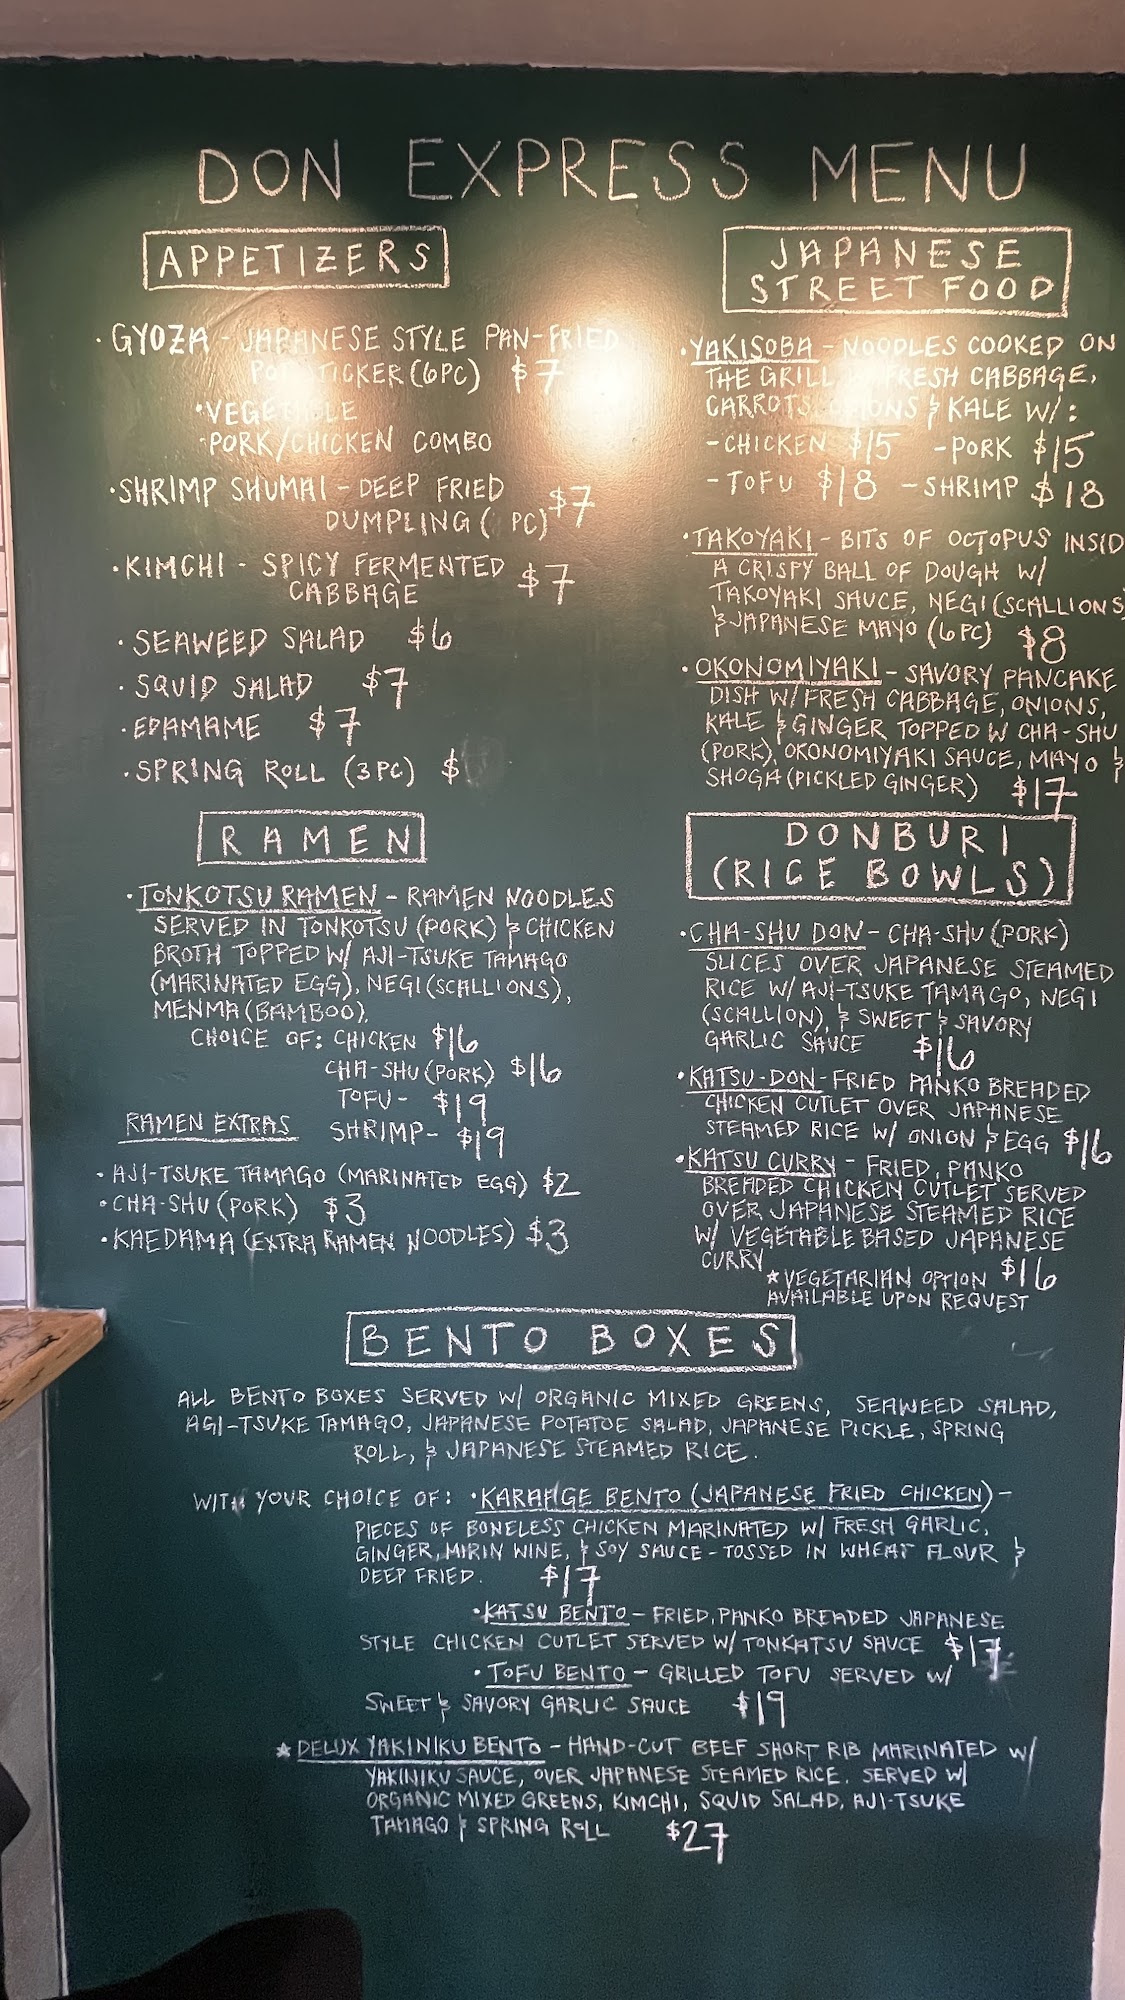 DON EXPRESS MENU
APPETIZERS
· GYOZA - JAPANESE STYLE PAN-FRIED
POTSTICKER (6PC) $7
· VEGETABLE
· PORK/CHICKEN COMBO
· SHRIMP SHUMAI - DEEP FRIED
DUMPLING ( PC) $7
· KIMCHI - SPICY FERMENTED
CABBAGE $7
· SEAWEED SALAD $6
· SQUID SALAD $7
· EDAMAME $7
· SPRING ROLL (3PC) $
RAMEN
· TONKOTSU RAMEN - RAMEN NOODLES
SERVED IN TONKOTSU (PORK) & CHICKEN
BROTH TOPPED W/ AJI-TSUKE TAMAGO
(MARINATED EGG), NEGI (SCALLIONS),
MENMA (BAMBOO).
CHOICE OF: CHICKEN $16
CHA-SHU (PORK) $16
TOFU - $19
SHRIMP - $19
RAMEN EXTRAS
· AJI-TSUKE TAMAGO (MARINATED EGG) $2
· CHA-SHU (PORK) $3
· KAEDAMA (EXTRA RAMEN NOODLES) $3
JAPANESE
STREET FOOD
· YAKISOBA - NOODLES COOKED ON
THE GRILL W/ FRESH CABBAGE,
CARROTS, ONIONS & KALE W/:
- CHICKEN $15 - PORK $15
- TOFU $18 - SHRIMP $18
· TAKOYAKI - BITS OF OCTOPUS INSID
A CRISPY BALL OF DOUGH W/
TAKOYAKI SAUCE, NEGI (SCALLIONS)
& JAPANESE MAYO (6PC) $8
· OKONOMIYAKI - SAVORY PANCAKE
DISH W/ FRESH CABBAGE, ONIONS,
KALE & GINGER TOPPED W CHA-SHU
(PORK), OKONOMIYAKI SAUCE, MAYO &
SHOGA (PICKLED GINGER) $17
DONBURI
(RICE BOWLS)
· CHA-SHU DON - CHA-SHU (PORK)
SLICES OVER JAPANESE STEAMED
RICE W/ AJI-TSUKE TAMAGO, NEGI
(SCALLION), & SWEET & SAVORY
GARLIC SAUCE $16
· KATSU-DON - FRIED PANKO BREADED
CHICKEN CUTLET OVER JAPANESE
STEAMED RICE W/ ONION & EGG $16
· KATSU CURRY - FRIED, PANKO
BREADED CHICKEN CUTLET SERVED
OVER JAPANESE STEAMED RICE
W/ VEGETABLE BASED JAPANESE
CURRY $16
★ VEGETARIAN OPTION
AVAILABLE UPON REQUEST
BENTO BOXES
ALL BENTO BOXES SERVED W/ ORGANIC MIXED GREENS, SEAWEED SALAD,
AGI-TSUKE TAMAGO, JAPANESE POTATOE SALAD, JAPANESE PICKLE, SPRING
ROLL, & JAPANESE STEAMED RICE.
WITH YOUR CHOICE OF: · KARAAGE BENTO (JAPANESE FRIED CHICKEN) -
PIECES OF BONELESS CHICKEN MARINATED W/ FRESH GARLIC,
GINGER, MIRIN WINE, & SOY SAUCE - TOSSED IN WHEAT FLOUR &
DEEP FRIED. $17
· KATSU BENTO - FRIED, PANKO BREADED JAPANESE
STYLE CHICKEN CUTLET SERVED W/ TONKATSU SAUCE $17
· TOFU BENTO - GRILLED TOFU SERVED W/
SWEET & SAVORY GARLIC SAUCE $19
★ DELUX YAKINIKU BENTO - HAND-CUT BEEF SHORT RIB MARINATED W/
YAKINIKU SAUCE, OVER JAPANESE STEAMED RICE. SERVED W/
ORGANIC MIXED GREENS, KIMCHI, SQUID SALAD, AJI-TSUKE
TAMAGO & SPRING ROLL $27